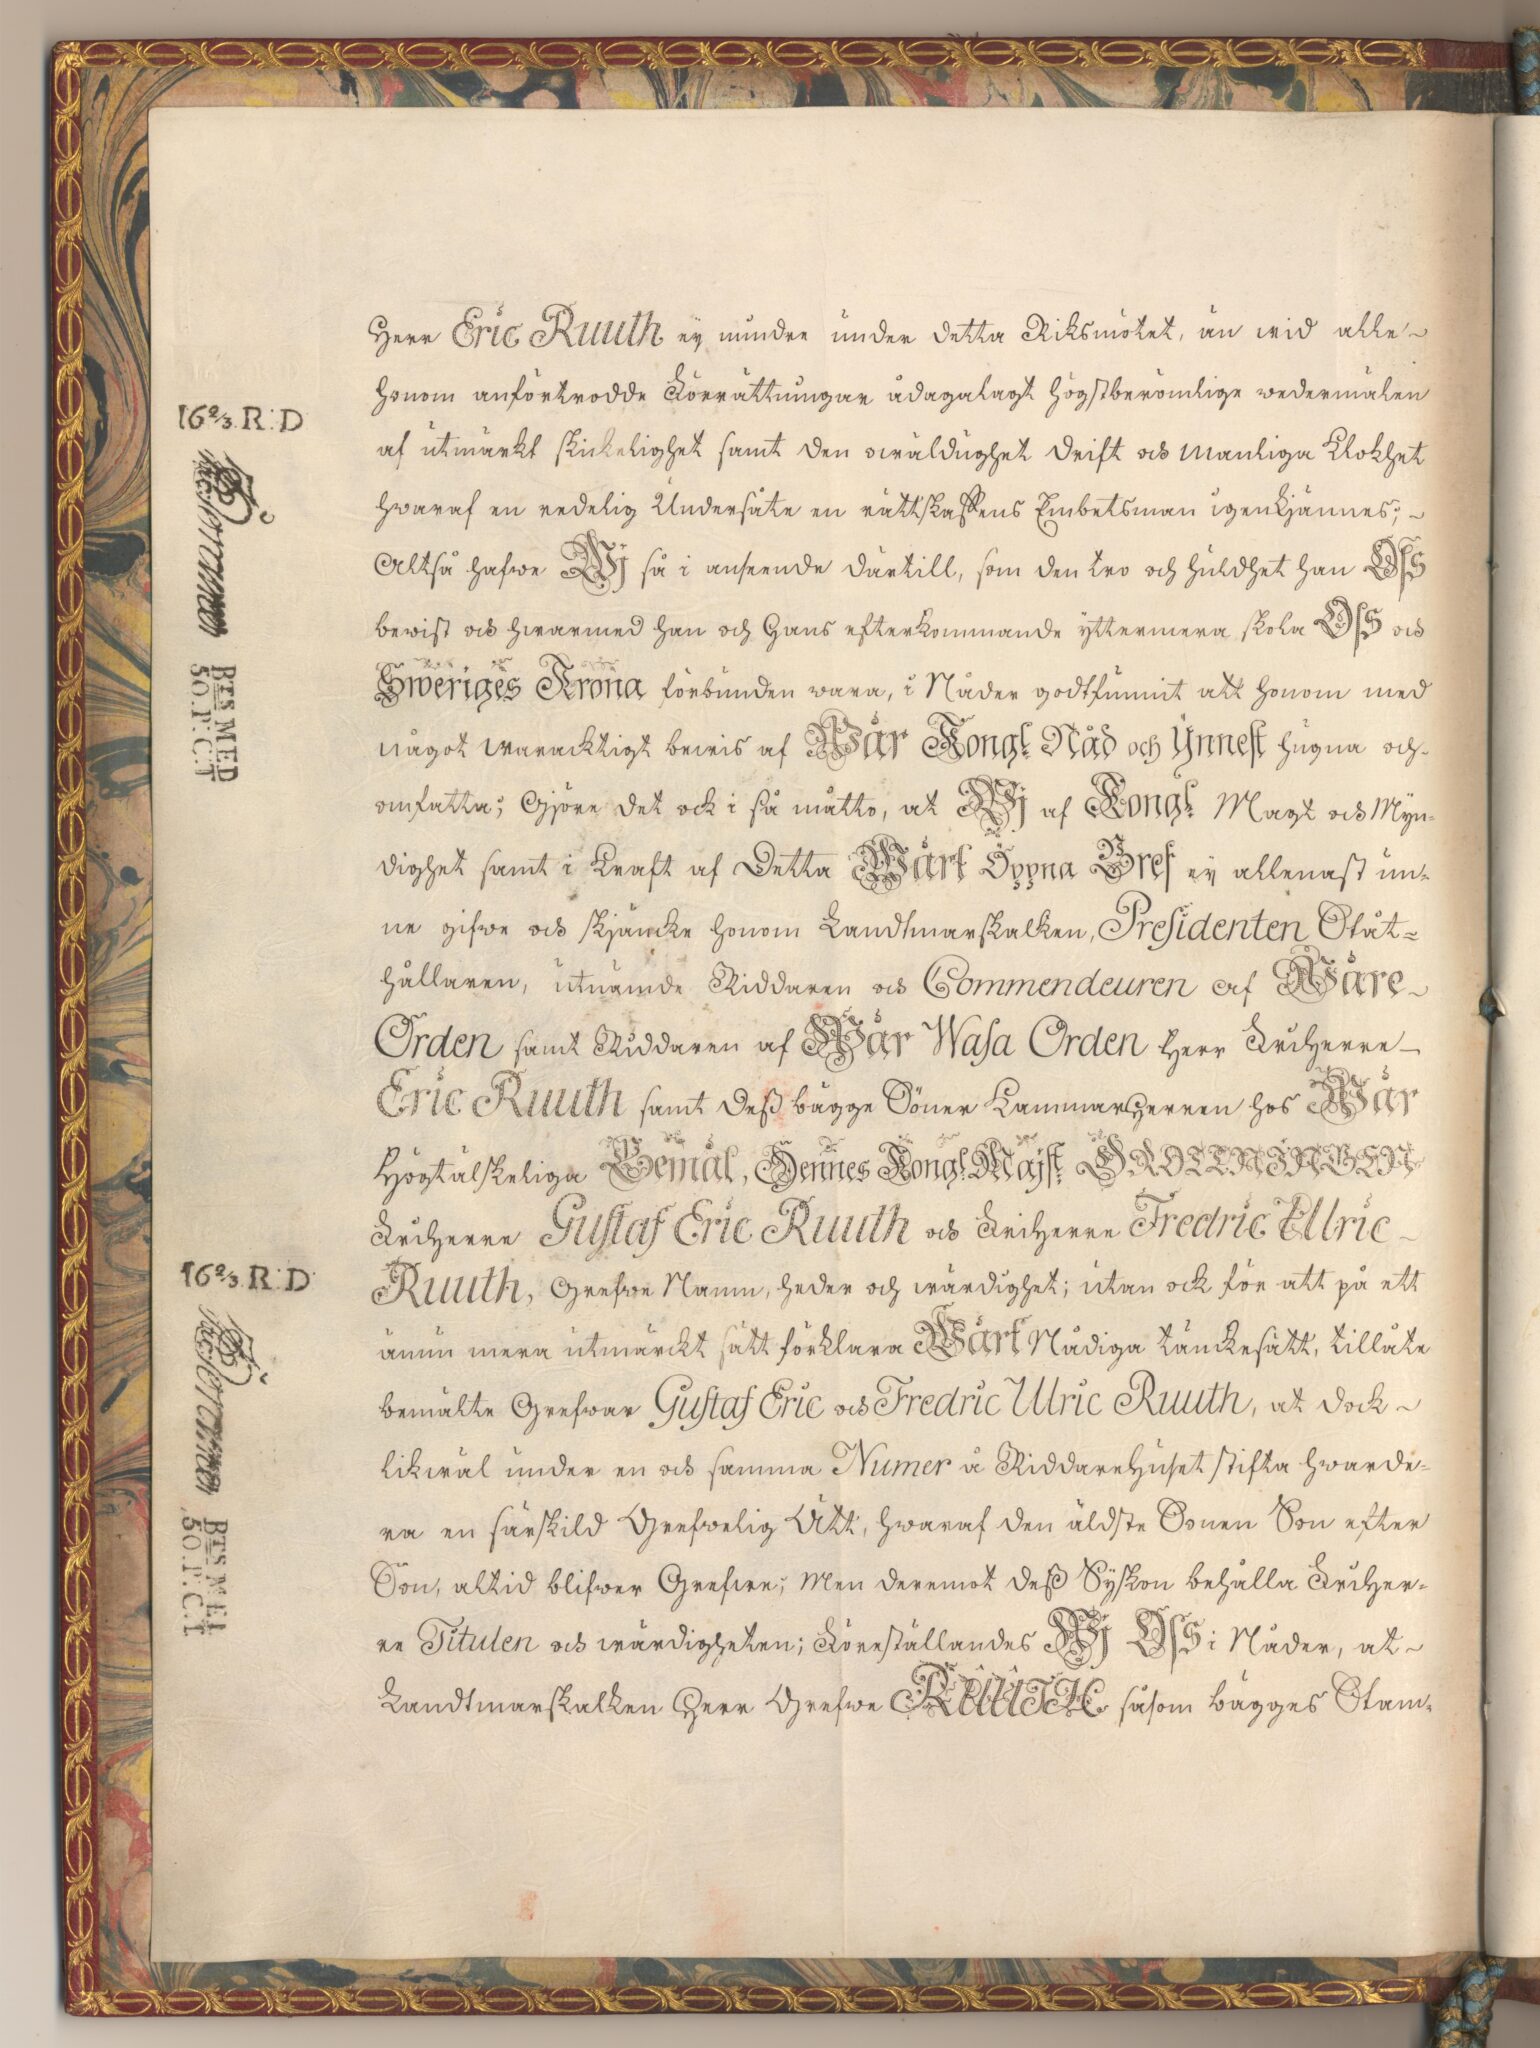 Herr Eric Ruuth ey mindre under detta Riksmötet, än wid alle
honom anförtrodde Förrättningar ådagalagt högstberömlige wedermälen
af utmärkt skickelighet samt den wäldughet drift och Manliga Klokhet
hwaraf en redelig Undersåte en rättskaffens Embetsman igenkjännes;
Altså hafwe Wj så i anseende därtill, som den tro och huldhet han Oss
bewist och hwarmed han och Hans efterkommande yttermera skola Oss och
Sweriges Krona förbunden wara, i Nåder godtfunnit att honom med
något waracktigt bewis af Wår Kongl. Nåd och Ynnest hugna och
omfatta; Gjöre det ock i så måtto, at Wj af Kongl. Magt och Myn-
dighet samt i Kraft af Detta Wårt Öppna Bref ey allenast un-
ne gifwe och skjäncke honom Landtmarskalken, Presidenten Ståt-
hållaren, utnämde Riddaren och Commendeuren af Wåre
Orden samt Riddaren af Wår Wasa Orden Herr Friherre
Eric Ruuth samt deß bägge Söner Kammarherren hos Wår
Högtälskeliga Gemål, Hennes Kongl. Majst. DROTTNINGEN
Friherre Gustaf Eric Ruuth och Friherre Fredric Ulric
Ruuth, Grefwe Namn, heder och wärdighet; utan ock för att på ett
ännu mera utmärckt sätt förklara Wårt Nådiga tänckesätt, tillåte
bemälte Grefwar Gustaf Eric och Fredric Ulric Ruuth, at dock
likwäl under en och samma Numer å RiddareHuset stifta hwarde-
ra en särskild Grefwelig Ätt, hwaraf den äldste Sonen Son efter
Son, altid blifwer Grefwe; Men deremot deß Syskon behålla Friher-
re Titulen och wärdigheten; Föreställandes Wj Oss i Nåder, at
Landtmarskalken Herr Grefwe RUUTH såsom bägges Stam-
16 2/3. R: D
BTS MED
50. P: C:T
16 2/3. R: D
BTS MED
50. P: C:T